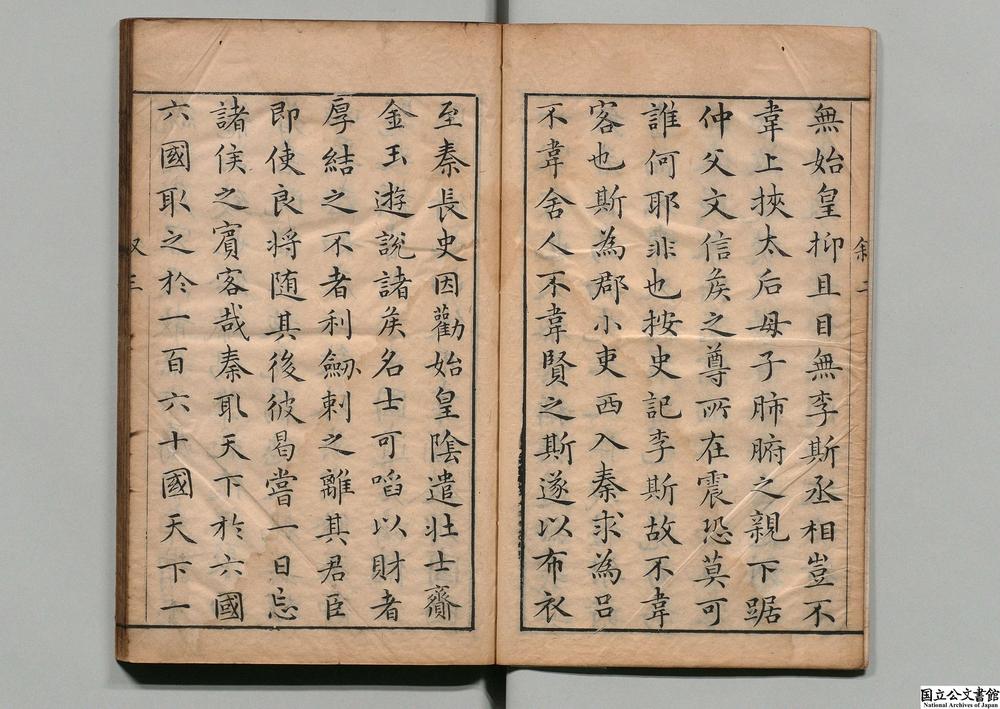 無始皇抑且目無李斯丞相豈不
韋上挾太后母子肺腑之親下踞
仲父文信矦之尊所在震恐莫可
誰何耶非也按史記李斯故不韋
客也斯為郡小吏西入秦求為呂
不韋舍人不韋賢之斯遂以布衣
至秦長史因勸始皇陰遣壯士齎
金玉遊說諸矦名士可啗以財者
厚結之不者利劒刺之離其君臣
即使良将随其後彼曷嘗一日忘
諸侯之賓客哉秦取天下於六國
六國取之於一百六十國天下一
叙三
国立公文書館
National Archives of Japan